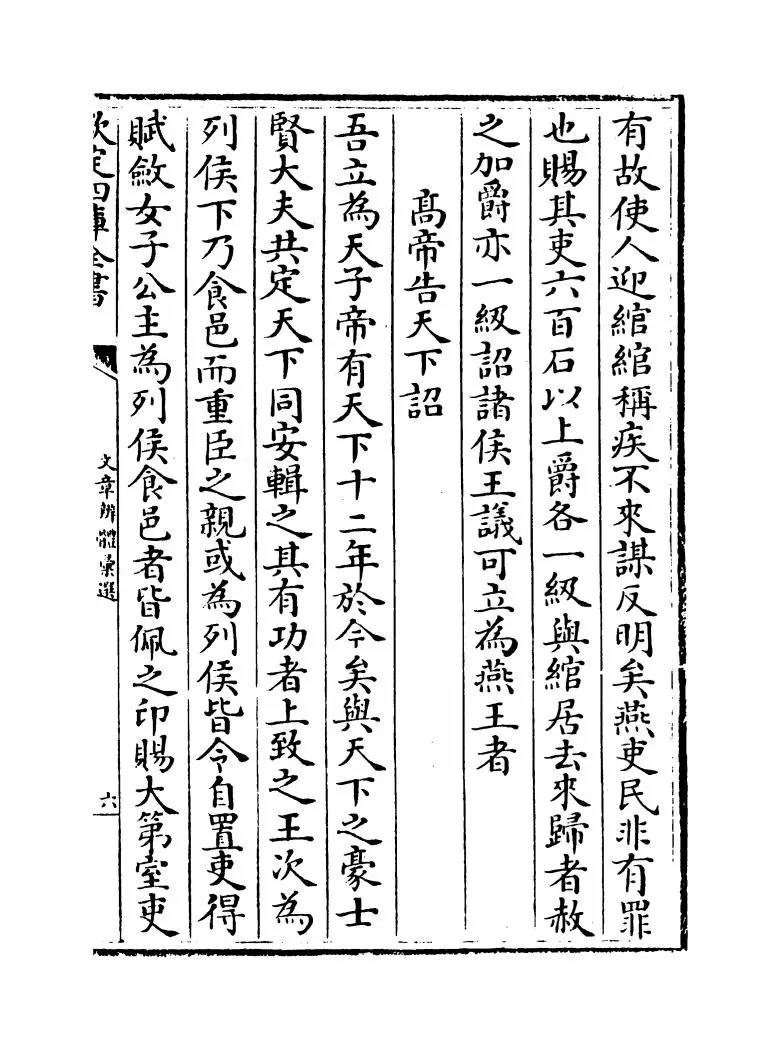 有故使人迎綰綰稱疾不來謀反明矣燕吏民非有罪
也賜其吏六百石以上爵各一級與綰居去來歸者赦
之加爵亦一級詔諸侯王議可立為燕王者
髙帝告天下詔
吾立為天子帝有天下十二年於今矣與天下之豪士
賢大夫共定天下同安輯之其有功者上致之王次為
列侯下乃食邑而重臣之親或為列侯皆令自置吏得
賦斂女子公主為列侯食邑者皆佩之印賜大第室吏
欽定四庫全書
文章辨體彙選
六